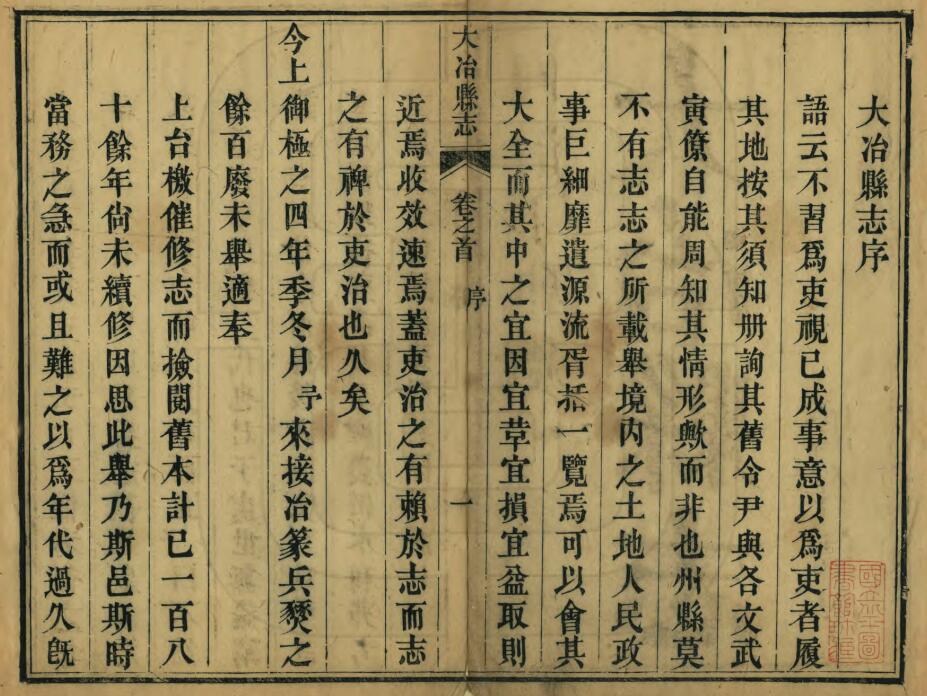 大冶縣志序
語云不習爲吏視已成事意以爲吏者履
其地按其須知册詢其舊令尹與各文武
寅僚自能周知其情形歟而非也州縣莫
不有志志之所載舉境內之土地人民政
事巨細靡遺源流胥括一覽焉可以會其
大全而其中之宜因宜革宜損宜益取則
大冶縣志 卷之首 序 一
近焉收效速焉蓋吏治之有賴於志而志
之有裨於吏治也久矣
今上御極之四年季冬月予來接冶篆兵燹之
餘百廢未舉適奉
上台檄催修志而撿閱舊本計已一百八
十餘年尙未續修因思此舉乃斯邑斯時
當務之急而或且難之以爲年代過久旣